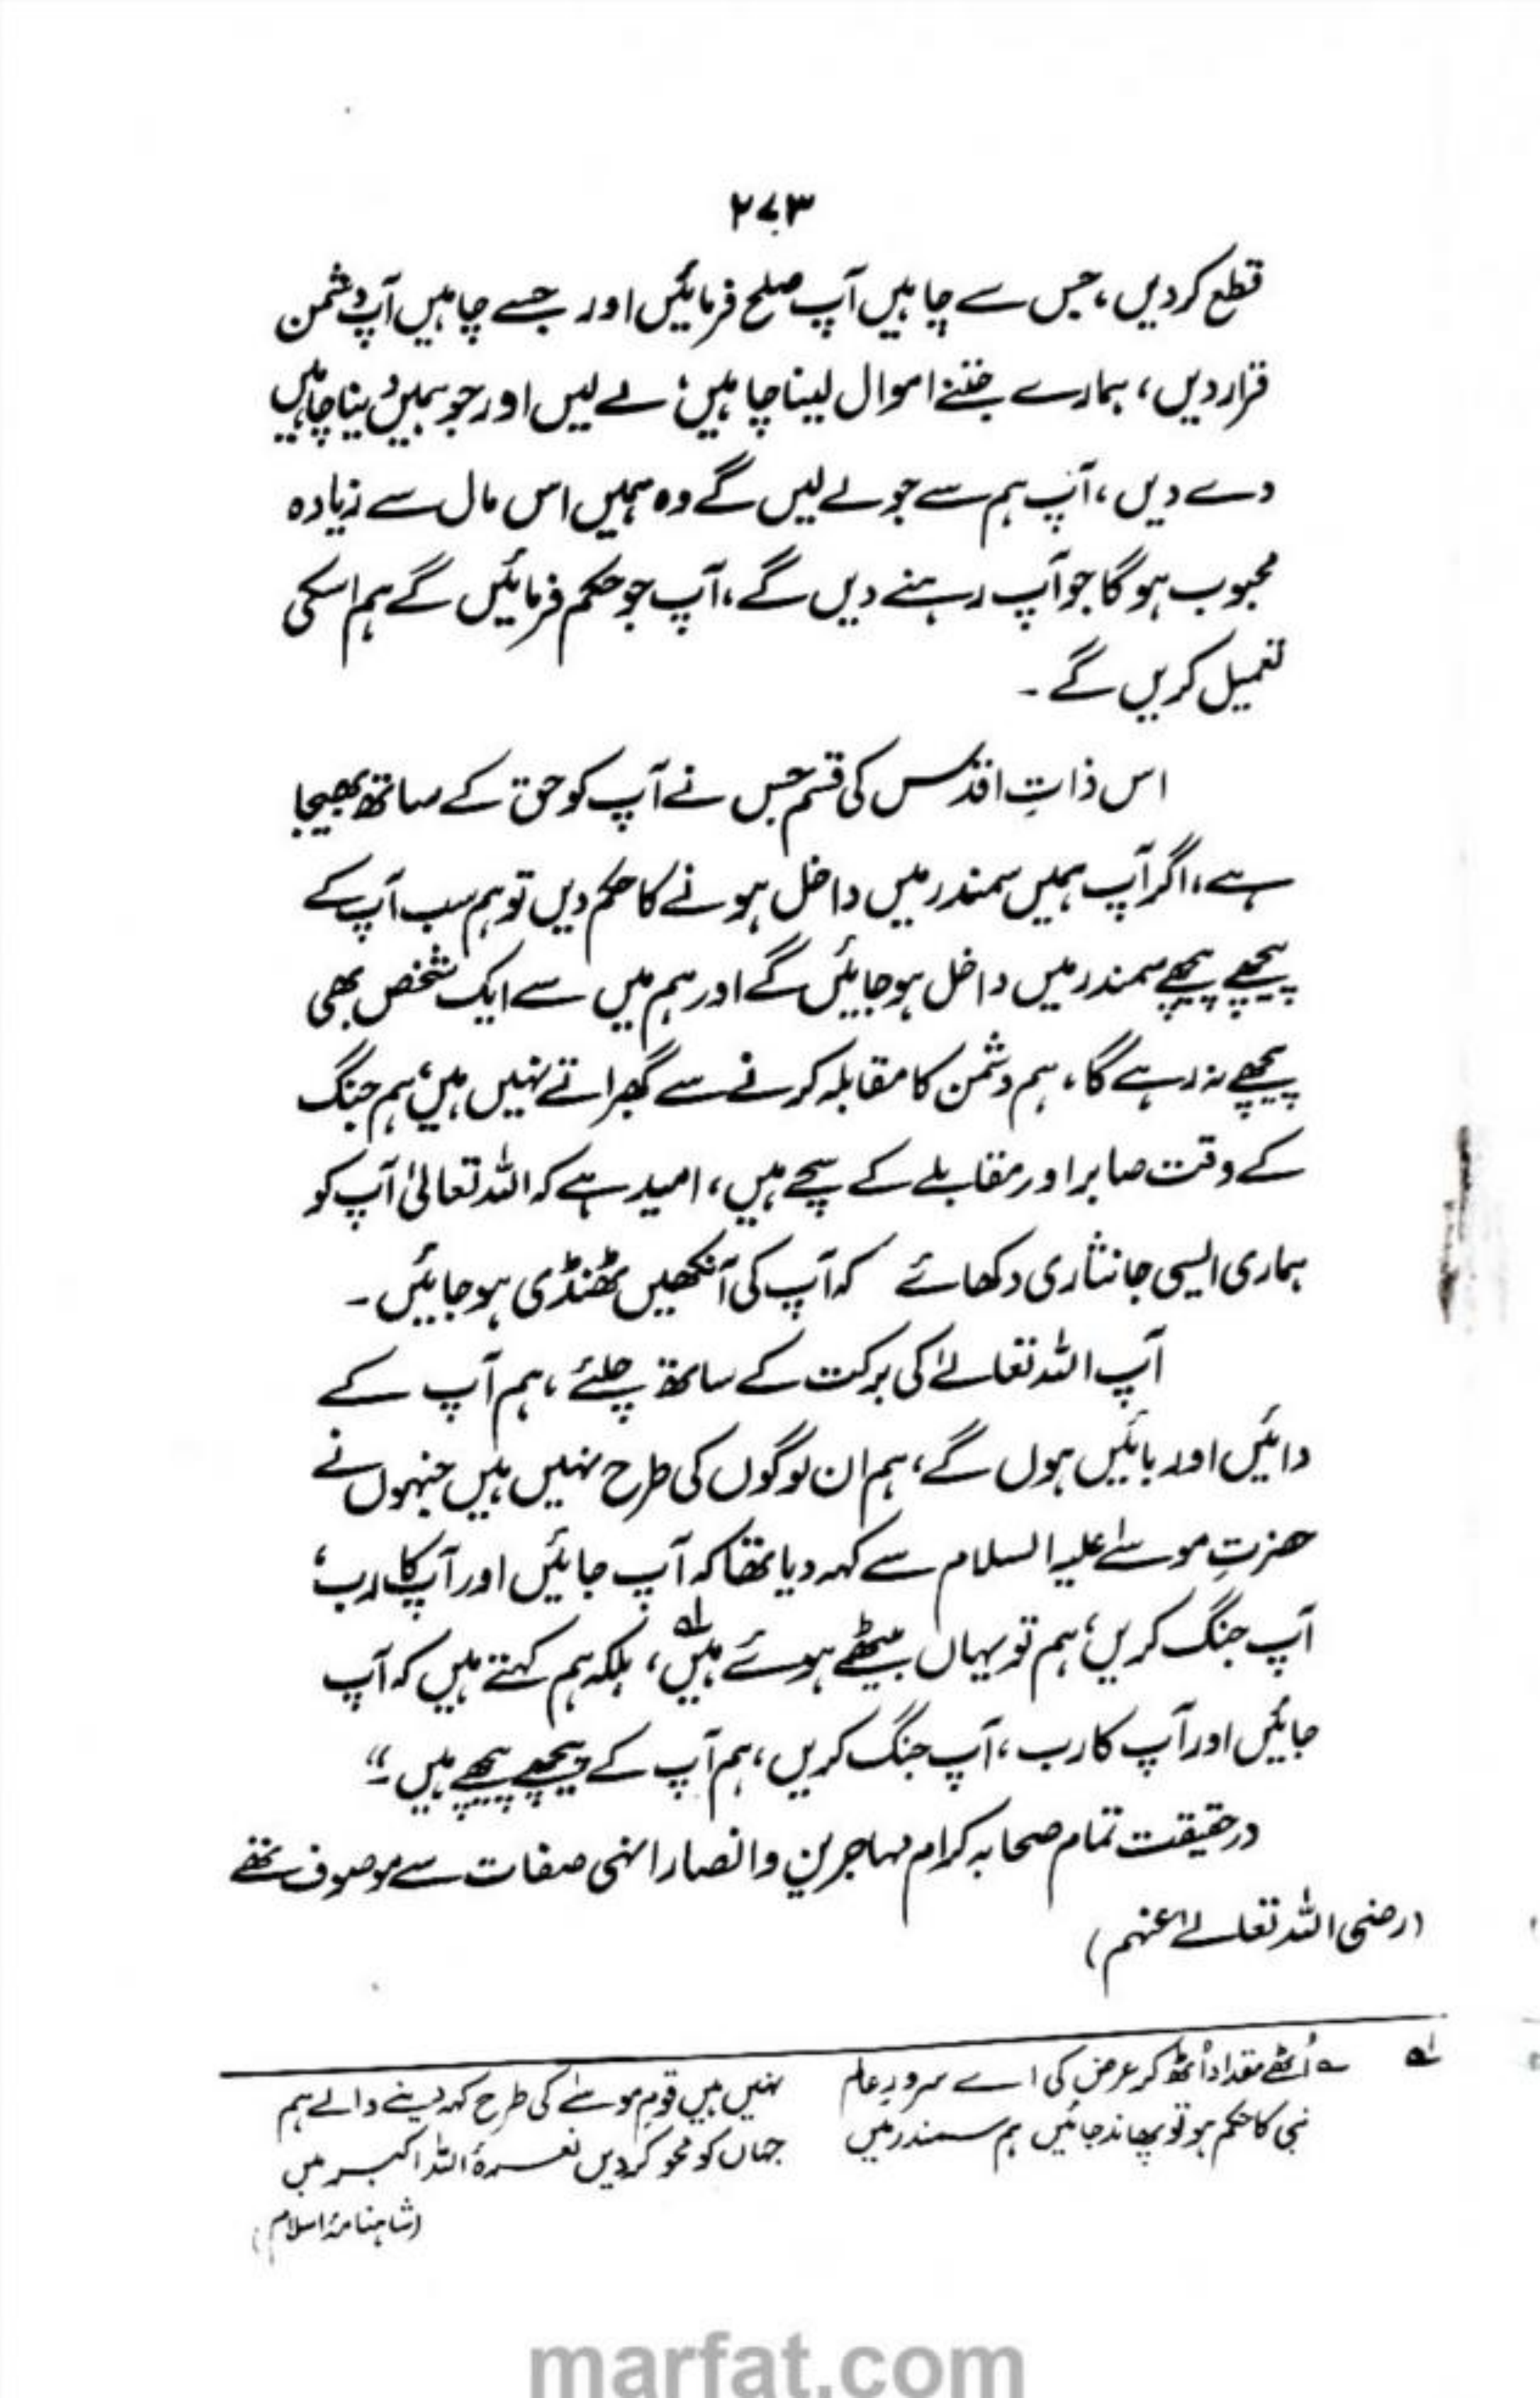 ۲۷۳
قطع کردیں، جس سے چاہیں آپ صلح فرمائیں اور جسے چاہیں آپ دشمن
قرار دیں، ہمارے جتنے اموال لینا چاہیں، لے لیں اور جو ہمیں دینا چاہیں
دے دیں، آپ ہم سے جو لے لیں گے وہ ہمیں اس مال سے زیادہ
محبوب ہو گا جو آپ رہنے دیں گے، آپ جو حکم فرمائیں گے ہم اسکی
تعمیل کریں گے ۔
اس ذاتِ اقدس کی قسم جس نے آپ کو حق کے ساتھ بھیجا
ہے، اگر آپ ہمیں سمندر میں داخل ہونے کا حکم دیں تو ہم سب آپ کے
پیچھے پیچھے سمندر میں داخل ہو جائیں گے اور ہم میں سے ایک شخص بھی
پیچھے نہ رہے گا، ہم دشمن کا مقابلہ کرنے سے گھبراتے نہیں ہیں، ہم جنگ
کے وقت صابر اور مقابلے کے سچے ہیں، امید ہے کہ اللہ تعالیٰ آپ کو
ہماری ایسی جانثاری دکھائے کہ آپ کی آنکھیں ٹھنڈی ہو جائیں ۔
آپ اللہ تعالےٰ کی برکت کے ساتھ چلئے، ہم آپ کے
دائیں اور بائیں ہوں گے، ہم ان لوگوں کی طرح نہیں ہیں جنہوں نے
حضرتِ موسےٰ علیہ السلام سے کہہ دیا تھا کہ آپ جائیں اور آپ کا رب،
آپ جنگ کریں، ہم تو یہاں بیٹھے ہوئے ہیں لہ، بلکہ ہم کہتے ہیں کہ آپ
جائیں اور آپ کا رب، آپ جنگ کریں، ہم آپ کے پیچھے پیچھے ہیں ۔"
درحقیقت تمام صحابہ کرام مہاجرین و انصار انہی صفات سے موصوف تھے
(رضی اللہ تعالےٰ عنہم)
لہ ؎ اُٹھے مقداد اُٹھ کر عرض کی اے سرورِ عالم نہیں ہیں قومِ موسےٰ کی طرح کہہ دینے والے ہم
نبی کا حکم ہو تو پھاند جائیں ہم سمندر میں جہاں کو محو کر دیں نعرۂ اللہ اکبر میں
(شاہنامۂ اسلام)
marfat.com